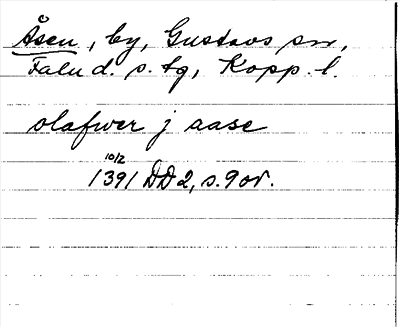 Åsen, by, Gustavs sn,
Falu d. s. tg, Kopp. l.
olafwer j aase
10/2
1391 DD2, s. 90r.